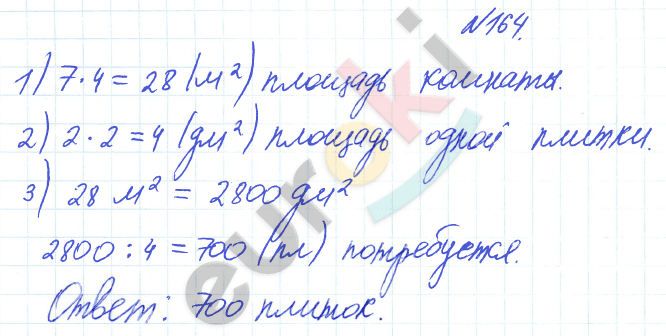 №164.
1) 7·4 = 28 (м²) площадь комнаты.
2) 2·2 = 4 (дм²) площадь одной плитки.
3) 28 м² = 2800 дм²
2800 : 4 = 700 (пл) потребуется.
Ответ: 700 плиток.
euroki